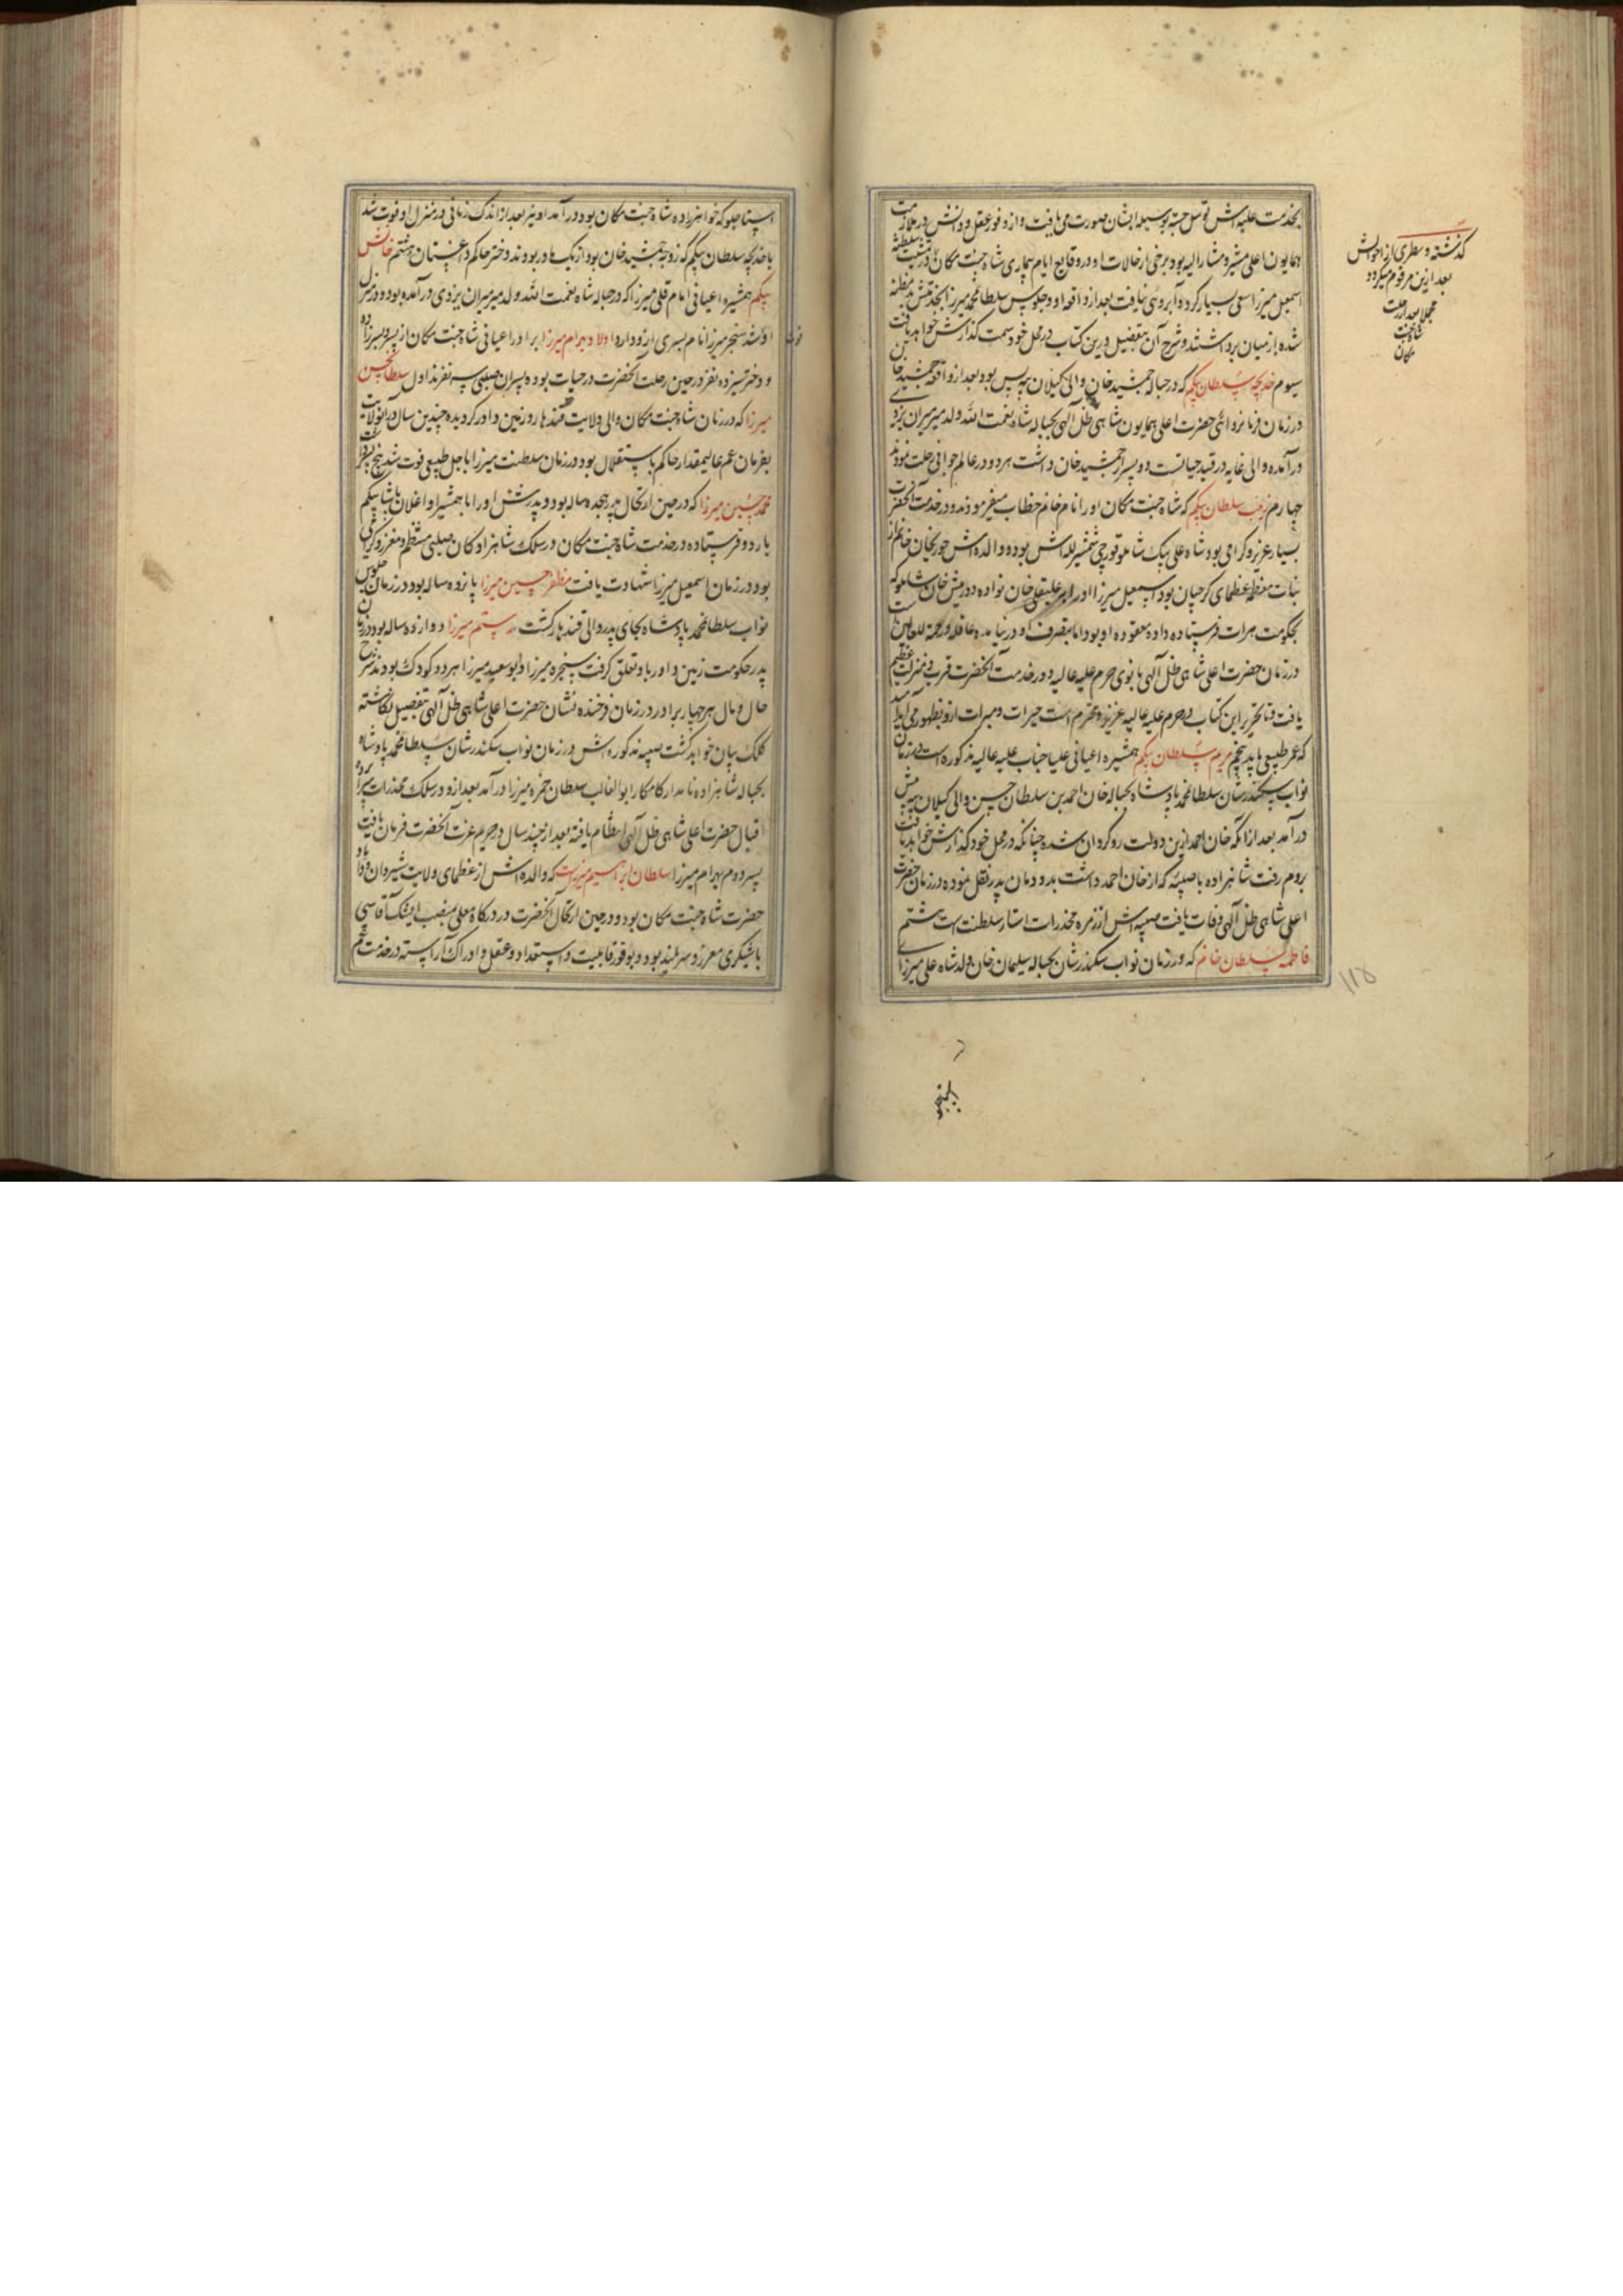 بخدمت علیه‌اش توسل جسته بوسیله ایشان صورت می‌یافت و از وفور عقل و دانش در ملازمت
همایون اعلی مشیر و مشار الیه بود برخی از حالات او در وقایع ایام بیماری شاه جنت مکان در سلطنت
اسمعیل میرزا سعی بسیار کرد و آبروئی نیافت بعد از واقعه او و جلوس سلطان محمد میرزا
شده از میان برداشتند و شرح آن بتفصیل درین کتاب در محل خود سمت گذارش خواهد یافت
سیوم خدیجه سلطان بیگم که در حباله جمشید خان والی گیلان بیه پس بود بعد از واقعه جمشید خان
در زمان فرمانروائی حضرت اعلی همایون شاهی ظل الهی بحباله شاه نعمت الله ولد میرمیران یزدی
درآمده والی غایه در قید حیاتست دو پسر از جمشید خان داشت هر دو در عالم جوانی رحلت نمودند
چهارم زینب سلطان بیگم که شاه جنت مکان او را نام خانم خطاب میفرمودند و در خدمت آنحضرت
بسیار عزیز و گرامی بود شاه علی بیک شاملو قورچی شمشیر لله‌اش بوده والده‌اش حوریجان خانم از
بنات معظمه عظمای گرجیان بود اسمعیل میرزا او را بر علیقلی خان نواده دورمیش خان شاملو که
بحکومت هرات فرستاده داده معقوده او بود اما بتصرف او در نیامده عاقله و رحمة للعالمین
در زمان حضرت اعلی شاهی ظل الهی بانوی حرم علیه عالیه و در خدمت آنحضرت قرب و منزلت عظیم
یافت و تا تحریر این کتاب در حرم علیه عالیه عزیزه و محترم است خیرات و مبرات ازو بظهور می‌آید امید
که عمر طبیعی یابد پنجم مریم سلطان بیگم همشیره اعیانی علیا جناب علیه عالیه مذکوره است در زمان
نواب سکندر شان سلطان محمد پادشاه بحباله خان احمد بن سلطان حسن والی گیلان بیه پیش
درآمد بعد از آنکه خان احمد ازین دولت روگردان شده چنانکه در محل خود گذارش خواهد یافت
بروم رفت شاهزاده با صبیه که از خان احمد داشت بدودمان پدر نقل نموده در زمان حضرت
اعلی شاهی ظل الهی وفات یافت صبیه‌اش از زمره مخدرات استار سلطنت است ششم
فاطمه سلطان خانم که در زمان نواب سکندر شان بحباله سلیمان خان ولد شاه علی میرزای
گذشته و سطری از احوالش
بعد ازین مرقوم میگردد
مجملا بعد از رحلت
شاه جنت
مکان
۱۱۵
استاجلو که خواهرزاده شاه جنت مکان بود درآمد او نیز بعد از اندک زمانی در منزل او فوت شد
با خدیجه سلطان بیگم که زوجه جمشید خان بود از یک مادر بودند دختر حاکم داغستان هشتم خانش
بیگم همشیره اعیانی امام قلی میرزا که در حباله شاه نعمت الله ولد میرمیران یزدی درآمده بود و در منزل
او فوت شد سنجر میرزا نام پسری ازو دارد اولاد بهرام میرزا برادر اعیانی شاه جنت مکان از پسر و پسرزاده
و دختر سیزده نفر در حین رحلت آنحضرت در حیات بوده پسران صلبی سه نفرند اول سلطان حسین
میرزا که در زمان شاه جنت مکان والی ولایت قندهار و زمین داور گردیده چندین سال در آن ولایت
بفرمان عم عالیمقدار حاکم باستقلال بود در زمان سلطنت میرزا باجل طبیعی فوت شد پنج پسر داشت
محمد حسین میرزا که در حین ارتحال پدر هجده ساله بود و پدرش او را با همشیر او اغلان پاشا بیگم
باردو فرستاده در خدمت شاه جنت مکان در سلک شاهزادگان صلبی منتظم و معزز و گرامی
بود در زمان اسمعیل میرزا شهادت یافت مظفر حسین میرزا پانزده ساله بود در زمان جلوس
نواب سلطان محمد پادشاه بجای پدر والی قندهار گشت رستم میرزا دوازده ساله بود در زمان
پدر حکومت زمین داور باو تعلق گرفت سنجر میرزا و ابوسعید میرزا هر دو کودک بودند شرح
حال و مآل هر چهار برادر در زمان فرخنده نشان حضرت اعلی شاهی ظل الهی بتفصیل نگاشته
کلک بیان خواهد گشت صبیه مذکوره‌اش در زمان نواب سکندر شان سلطان محمد پادشاه
بحباله شاهزاده نامدار کامکار ابوالغالب سلطان حمزه میرزا درآمد بعد ازو در سلک مخدرات سراپرده
اقبال حضرت اعلی شاهی ظل الهی انتظام یافته بعد از چند سال در حریم عزت آنحضرت فرمان یافت
پسر دوم بهرام میرزا سلطان ابراهیم میرزاست که والده‌اش از عظمای ولایت شیروان و داماد
حضرت شاه جنت مکان بود و در حین ارتحال آنحضرت در درگاه معلی بمنصب ایشک آقاسی
باشیگری معزز و سربلند بود و بوفور قابلیت و استعداد و عقل و ادراک آراسته در خدمت عم